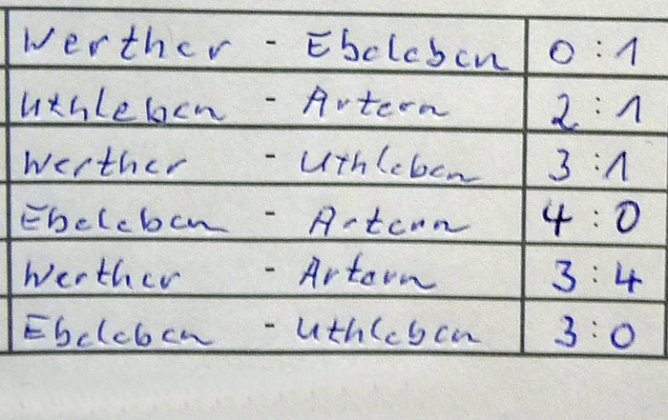 Werther - Ebeleben 0:1
Uthleben - Artern 2:1
Werther - Uthleben 3:1
Ebeleben - Artern 4:0
Werther - Artern 3:4
Ebeleben - Uthleben 3:0